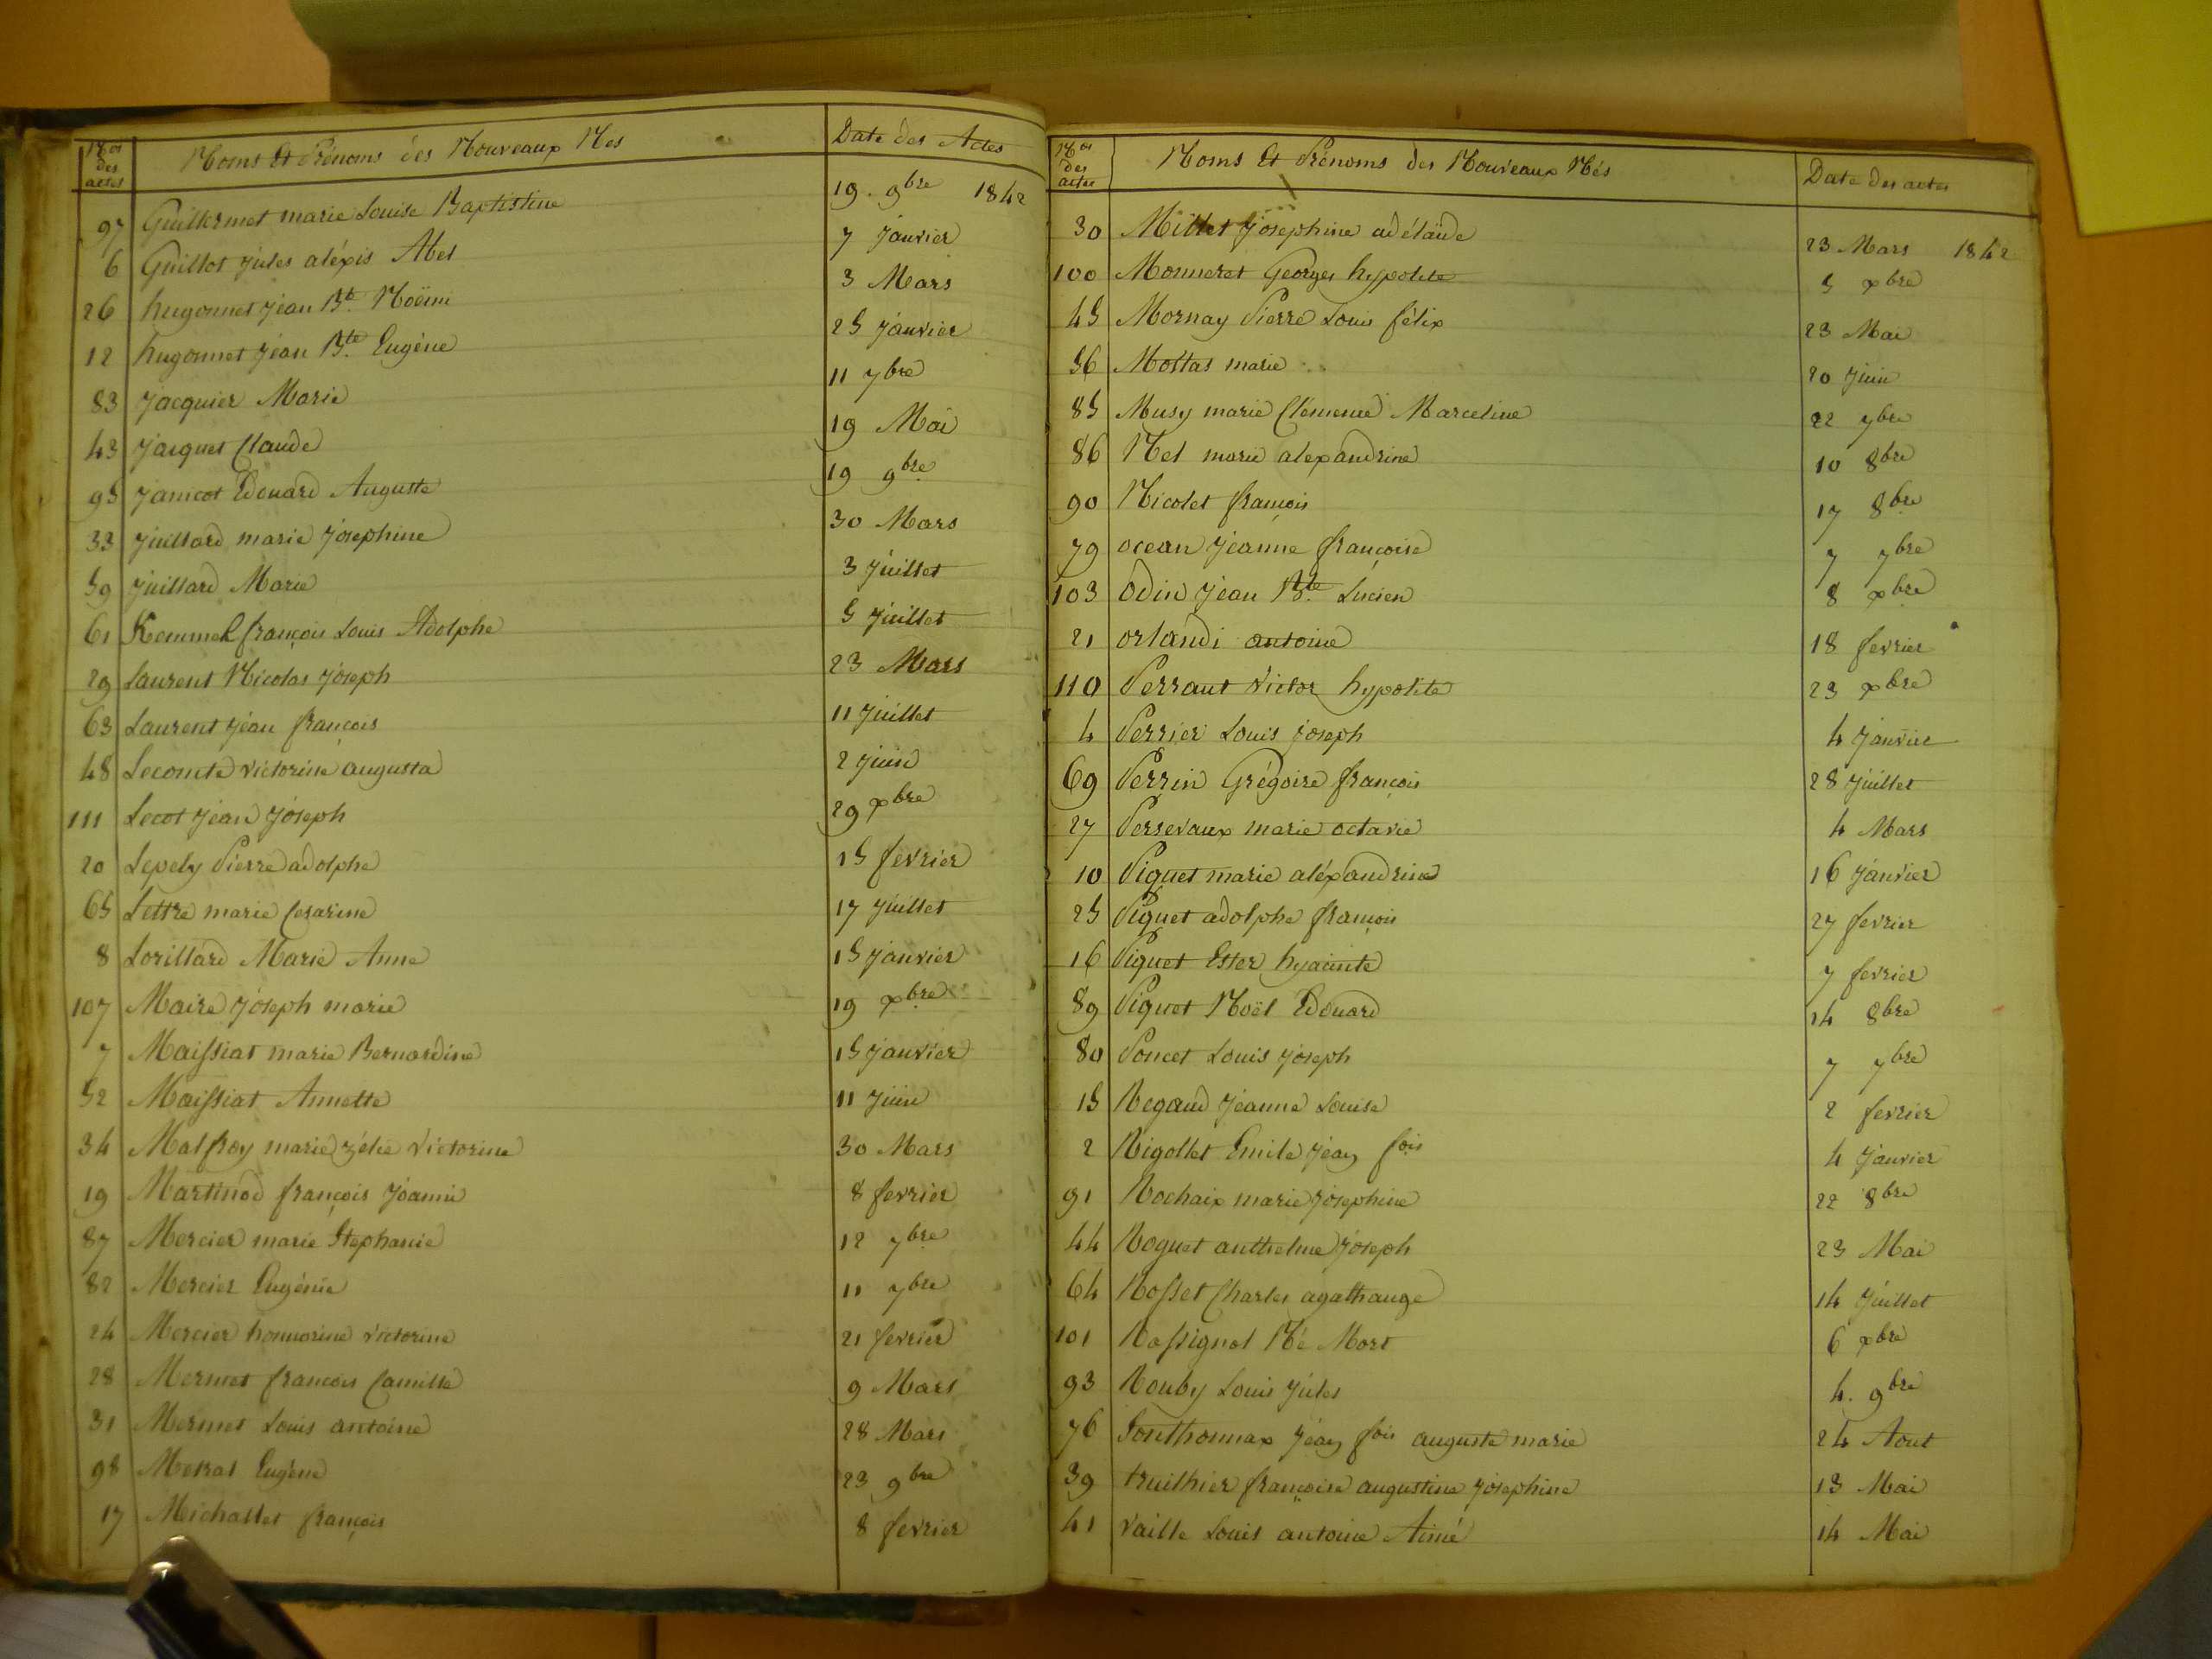 Nos des actes Noms Et Prénoms des Nouveaux Nés Date des Actes
97 Guillermet marie Louise Baptistine 19. 9bre 1842
6 Guillot jules aléxis Abel 7 janvier
26 hugonnet jean Bte Noëmi 3 Mars
12 hugonnet jean Bte Eugène 25 janvier
83 jacquier Marie 11 7bre
43 jacquet Claude 19 Mai
95 janicot Edouard Auguste 19 9bre
33 juillard marie josephine 30 Mars
59 juillard Marie 3 juillet
61 Kemmel françois Louis Adolphe 5 juillet
29 Laurent Nicolas joseph 23 Mars
63 Laurent jean françois 11 juillet
48 Lecomte victorine augusta 2 juin
111 Lecot jean joseph 29 xbre
20 Lepely Pierre adolphe 15 fevrier
65 Lettre marie Cesarine 17 juillet
8 Lorillard Marie Anne 15 janvier
107 Maire joseph marie 19 xbre
7 Maissiat marie Bernardine 15 janvier
52 Maissiat Annette 11 juin
34 Malfroy marie zélie victorine 30 Mars
19 Martinod françois joanni 8 fevrier
87 Mercier marie Stephanie 12 7bre
82 Mercier Eugénie 11 7bre
24 Mercier honnorine victorine 21 fevrier
28 Mermet francois Camille 9 Mars
31 Mermet Louis antoine 28 Mars
98 Metral Eugène 23 9bre
17 Michallet françois 8 fevrier
Nos des actes Noms Et Prénoms des Nouveaux Nés Date des actes
30 Millet josephine adélaïde 23 Mars 1842
100 Monneret Georges hypolite 5 xbre
45 Mornay Pierre Louis félix 23 Mai
56 Mostas marie 20 juin
85 Musy marie Clémence Marceline 22 7bre
86 Nel marie alexandrine 10 8bre
90 Nicolet françois 17 8bre
79 ocean jeanne françoise 7 7bre
103 Odin jean Bte Lucien 8 xbre
21 orlandi antoine 18 fevrier
110 Perraut victor hypolite 23 xbre
4 Perrier Louis joseph 4 janvier
69 Perrin Grégoire françois 28 juillet
27 Persevaux marie octavie 4 Mars
10 Piguet marie aléxandrine 16 janvier
25 Piguet adolphe françois 27 fevrier
16 Piguet Ester hyacinte 7 fevrier
89 Piguet Noël Edouard 14 8bre
80 Poncet Louis joseph 7 7bre
15 Regaud jeanne Louise 2 fevrier
2 Rigollet Emile jean fois 4 janvier
91 Rochaix marie josephine 22 8bre
44 Roguet anthelme joseph 23 Mai
64 Rosset Charles agathange 14 juillet
101 Rossignol Né Mort 6 xbre
93 Rouby Louis jules 4. 9bre
76 Sonthonnax jean fois auguste marie 24 Aout
39 truilhier françoise augustine josephine 13 Mai
41 vaille Louis antoine Aimé 14 Mai